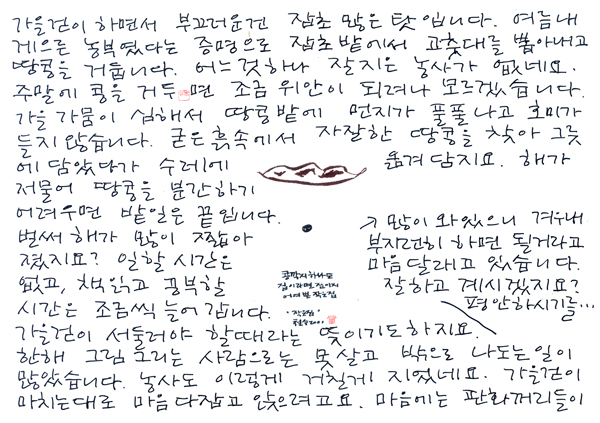 가을걷이 하면서 부끄러운건 잡초 많은 탓입니다. 여름내
게으른 농부였다는 증명으로 잡초밭에서 고춧대를 뽑아내고
땅콩을 거둡니다. 어느것하나 잘지은 농사가 없네요.
주말에 콩을 거두면 조금 위안이 되려나 모르겠습니다.
가을 가뭄이 심해서 땅콩밭에 먼지가 풀풀나고 호미가
들지 않습니다. 굳은 흙속에서 자잘한 땅콩을 찾아 그릇
에 담았다가 수레에 옮겨 담지요. 해가
저물어 땅콩을 분간하기
어려우면 밭일은 끝입니다.
벌써 해가 많이 짧아
졌지요? 일할 시간은
없고, 책읽고 공부할
시간은 조금씩 늘어 갑니다.
가을걷이 서둘러야 할때라는 뜻이기도하지요.
한해 그림 그리는 사람으로는 못살고 밖으로 나도는일이
많았습니다. 농사도 이렇게 거칠게 지었네요. 가을걷이
마치는대로 마음 다잡고 앉으려고요. 마음에는 판화꺼리들이
↗ 많이 와있으니 겨우내
부지런히 하면 될거라고
마음달래고 있습니다.
잘하고 계시겠지요?
평안하시기를...
콩깍지 하나도
집이라면 집이지
어여쁜 작은집